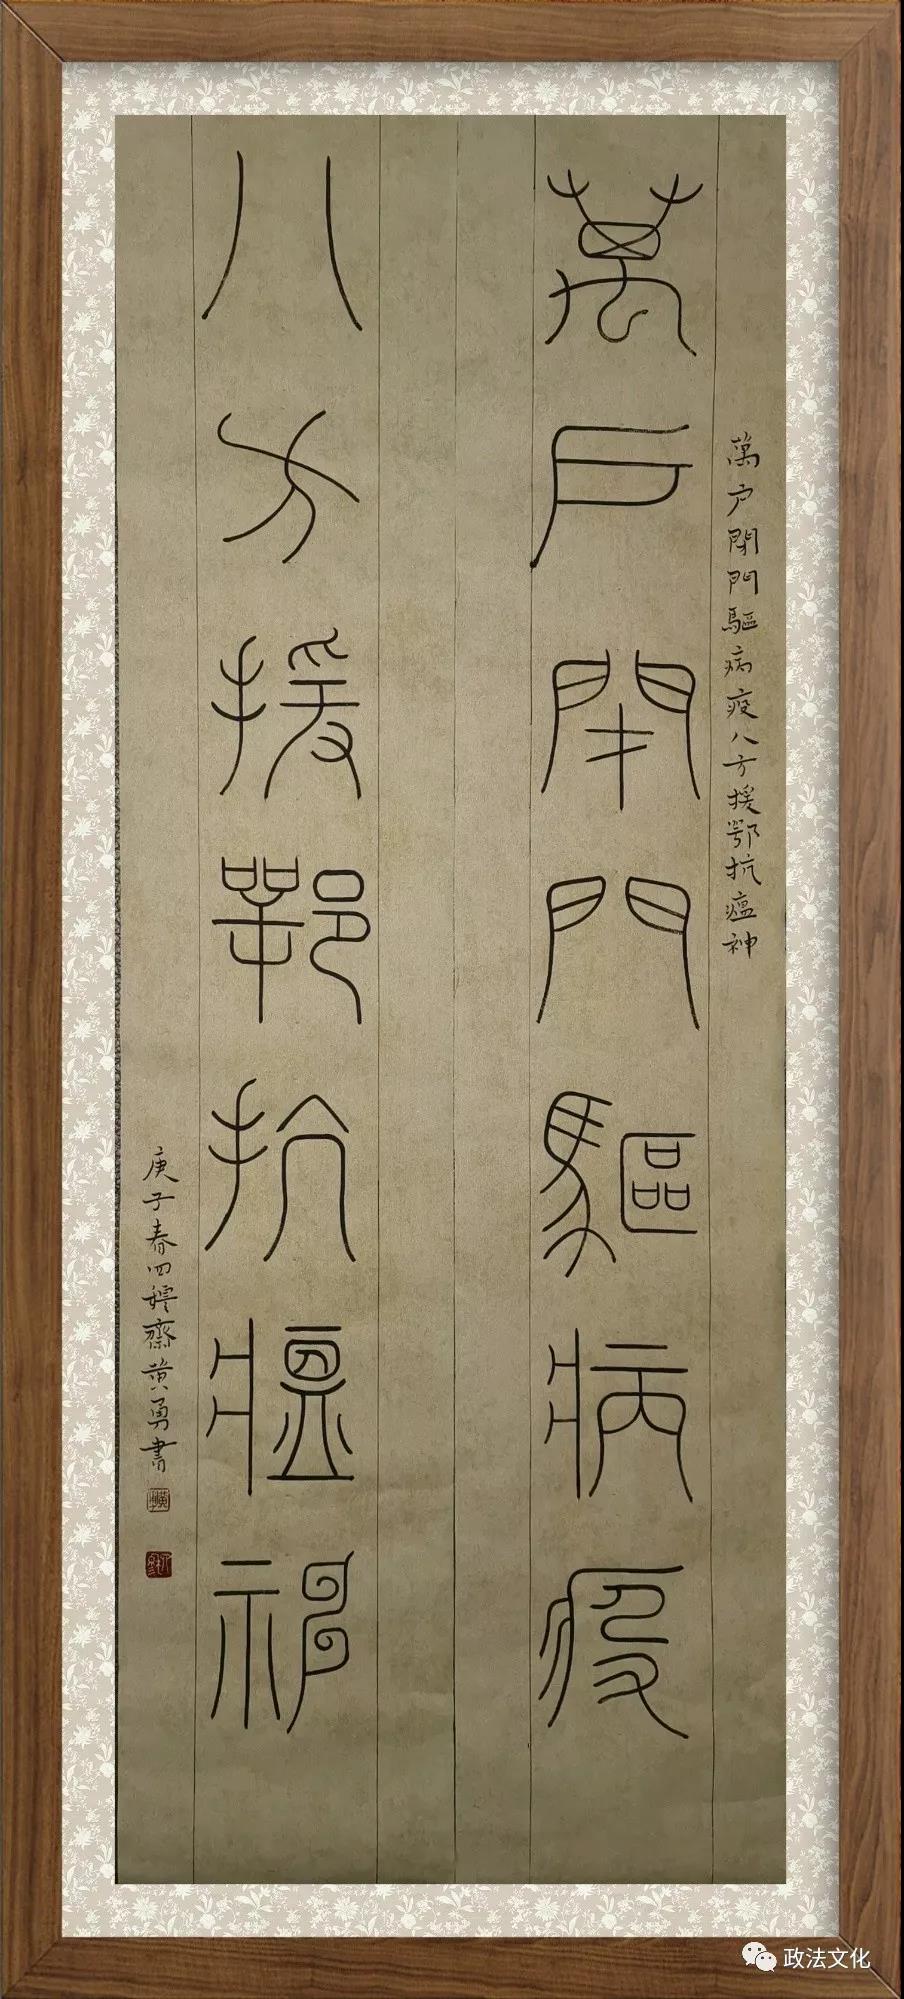 萬戶閉門驅病疫八方援鄂抗瘟神
萬戶閉門驅病疫
八方援鄂抗瘟神
庚子春四 齋黃勇書
政法文化